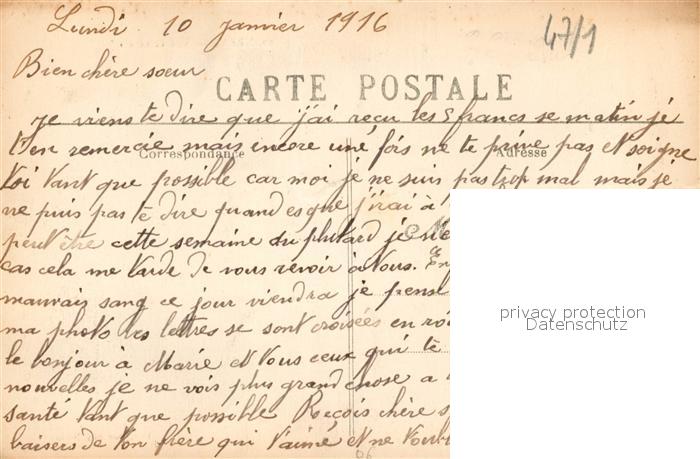 Lundi 10 janvier 1916
47/1
Bien chère soeur
CARTE POSTALE
je viens te dire que j'ai reçu les 5 francs se matin je
t'en remercie mais encore une fois ne te prive pas et soigne
Correspondance Adresse
toi tant que possible car moi je ne suis pas trop mal mais je
ne puis pas te dire quand es que j'irai à
peut être cette semaine du plutard je
cas cela me tarde de vous revoir à vous. En
mauvais sang ce jour viendra je pense
ma photo les lettres se sont croisées en
le bonjour à Marie et tous ceux qui te
nouvelles je ne vois plus grand chose a
santé tant que possible Reçois chère
baisers de ton frère qui t'aime et ne
privacy protection
Datenschutz